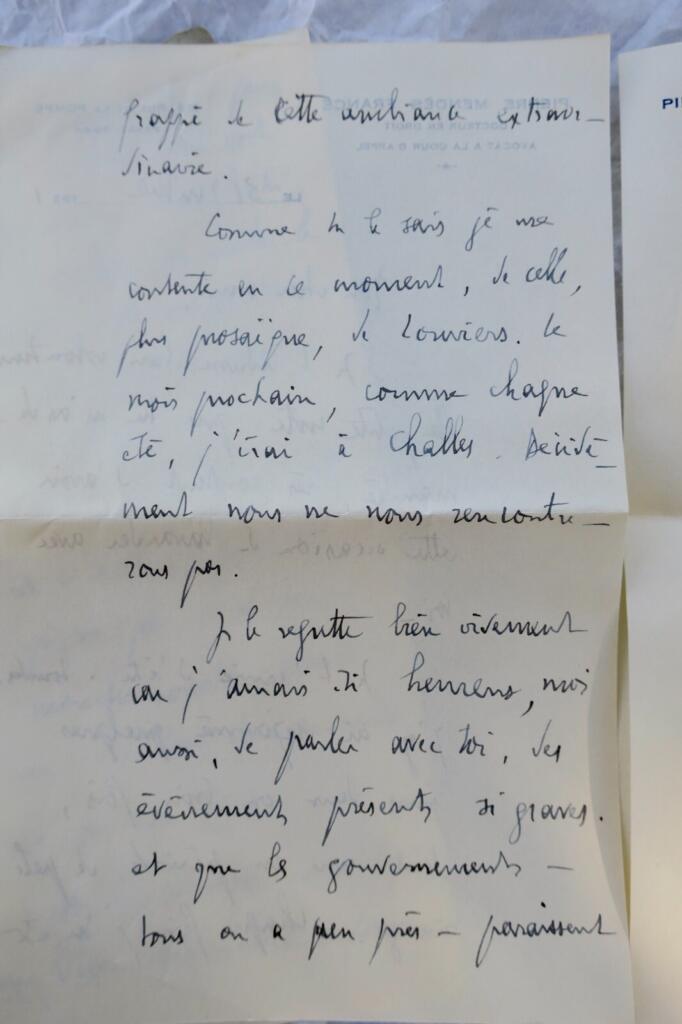 frappé de cette ambiance extraor-
dinaire.
Comme tu le sais je me
contente en ce moment, de celle,
plus prosaïque, de Louviers. Le
mois prochain, comme chaque
été, j'irai à Challes. Décidé-
ment nous ne nous rencontre-
rons pas.
Je le regrette bien vivement
car j'aurais été heureux, moi
aussi, de parler avec toi, des
évènements présents si graves.
et que les gouvernements -
tous ou à peu près - paraissent
PI
PIERRE MENDÈS FRANCE
DOCTEUR EN DROIT
AVOCAT A LA COUR D'APPEL
LE